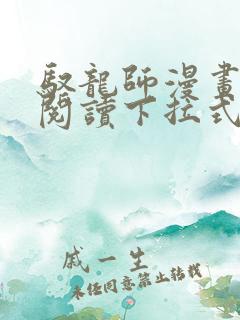 馭龍師漫畫
閱讀下拉式
戚一生
未经同意禁止转载